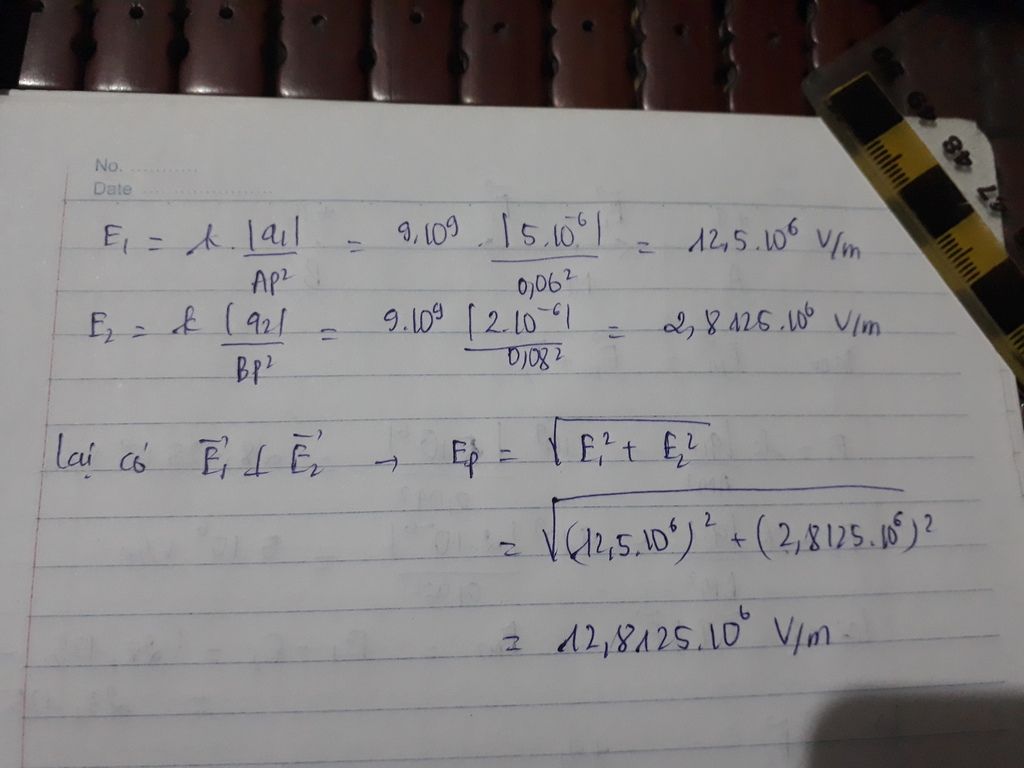 No. ............
Date .......................
E₁ = k . |q₁| / AP² = 9.10⁹ . |5.10⁻⁶| / 0,06² = 12,5.10⁶ V/m
E₂ = k |q₂| / BP² = 9.10⁹ |2.10⁻⁶| / 0,08² = 2,8125.10⁶ V/m
lại có E⃗₁ ⊥ E⃗₂ → Ep = √(E₁² + E₂²)
= √((12,5.10⁶)² + (2,8125.10⁶)²)
= 12,8125.10⁶ V/m
49
48
47